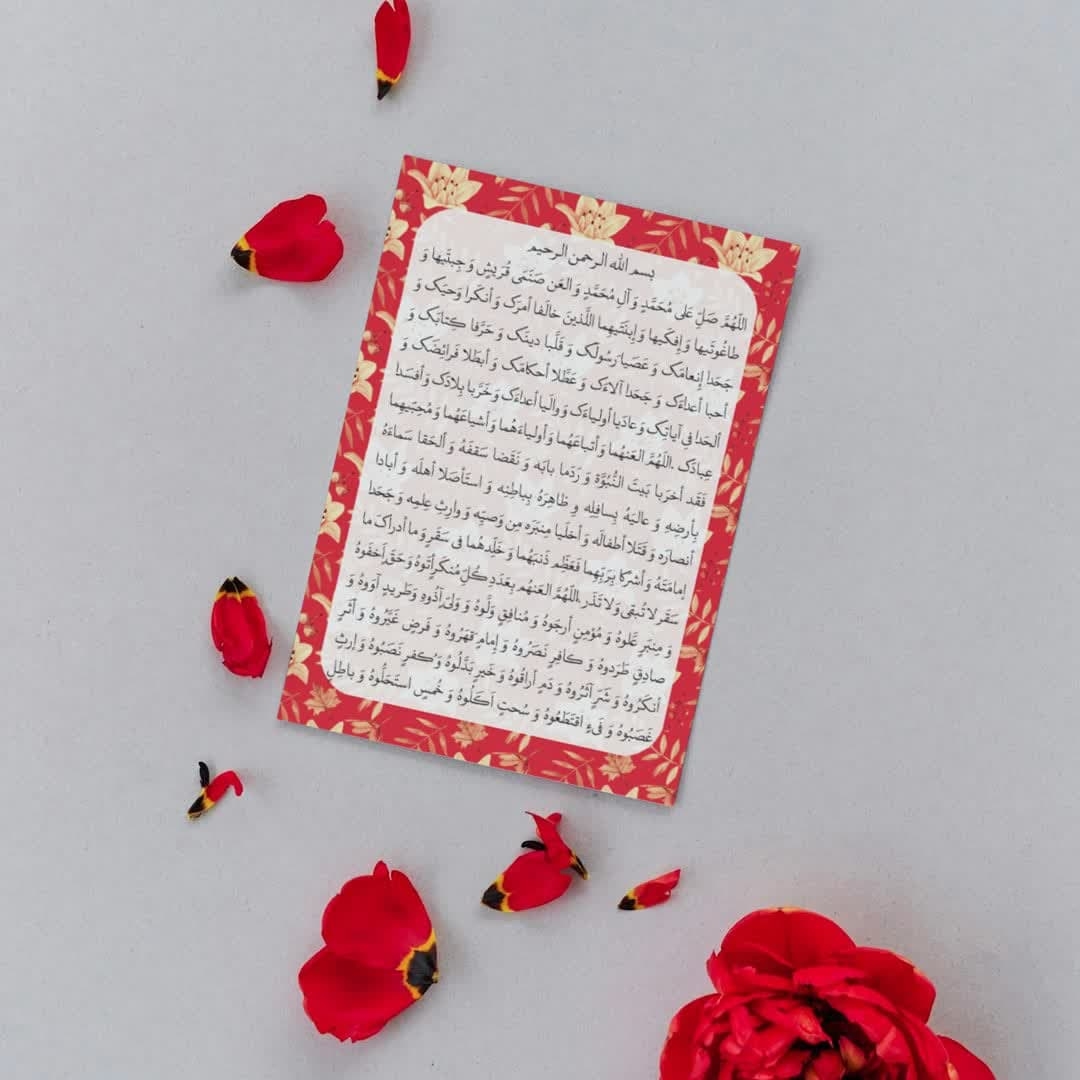 بسم الله الرحمن الرحیم
اللّهُمَّ صَلِّ عَلی مُحَمَّدٍ وَ آلِ مُحَمَّدٍ وَ العَن صَنَمَی قُرَیشٍ وَ جِبتَیها وَ
طاغُوتَیها وَ إفِکَیها وَ إبنَتَیهِما اللَّذینَ خالَفا أمرَک وَ أنکَرا وَحیَک وَ
جَحَدا إنعامَک وَ عَصَیا رَسُولَک وَ قَلَّبا دینَک وَ حَرَّفا کِتابَک وَ
أحبا أعداءَک وَ جَحَدا آلاءَک وَ عَطَّلا أحکامَک وَ أبطَلا فَرائِضَک وَ
ألحَدا فی آیاتِک وَ عادَیا أولیاءَک وَ والَیا أعداءَک وَ خَرَّبا بِلادَک وَ أفسَدا
عِبادَک .اللّهُمَّ العَنهُما وَ أتباعَهُما وَ أولیاءَهُما وَ أشیاعَهُما وَ مُحِبّیهِما
فَقَد أخرَبا بَیتَ النُّبُوَّة وَ رَدَما بابَه وَ نَقَضا سَقفَهُ وَ ألحَقا سَماءَهُ
بِأرضِهِ وَ عالیَهُ بِسافِلِه وِ ظاهِرَهُ بِباطِنِه وَ استَأصَلا أهلَه وَ أبادا
أنصارَه وَ قَتَلا أطفالَه وَ أخلَیا مِنبَرَه مِن وَصیِّه وَ وارِثِ عِلمِه وَ جَحَدا
إمامَتَهُ وَ أشرَکا بِرَبِّهِما فَعَظِّم ذَنبَهُما وَ خَلِّدهُما فی سَقَرٍ وَ ما أدراکَ ما
سَقَر لا تُبقی وَلا تَذَر.اللّهُمَّ العَنهُم بِعَدَدِ کُلِّ مُنکَرٍ أتَوهُ وَ حَقٍّ أخفَوهُ
وَ مِنبَرٍ عَلَوهُ وَ مُؤمِنٍ أرجَوهُ وَ مُنافِقٍ وَلَّوهُ وَ وَلیٍّ آذَوهِ وَ طَریدٍ آوَوهُ وَ
صادِقٍ طَرَدوهُ وَ کافِرٍ نَصَرُوهُ وَ إمامٍ قَهَرُوهُ وَ فَرضٍ غَیَّرُوهُ وَ أثَرٍ
أنکَرُوهُ وَ شَرٍّ آثَرُوهُ وَ دَمٍ أراقُوهُ وَ خَیرٍ بَدَّلُوهُ وَ کُفرٍ نَصَبُوهُ وَ إرثٍ
غَصَبُوهُ وَ فَیءٍ اقتَطَعُوهُ وَ سُحتٍ أکَلُوهُ وَ خُمسٍ استَحَلُّوهُ وَ باطِلٍ